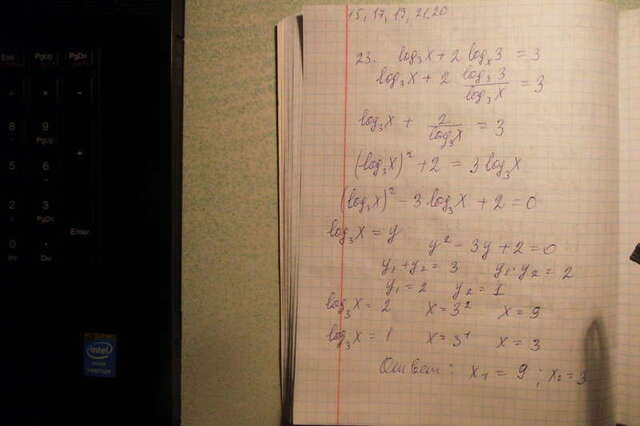 15, 17, 19, 21, 20
23. log₃x + 2 logₓ3 = 3
log₃x + 2 log₃3/log₃x = 3
log₃x + 2/log₃x = 3
(log₃x)² + 2 = 3 log₃x
(log₃x)² - 3 log₃x + 2 = 0
log₃x = y
y² - 3y + 2 = 0
y₁ + y₂ = 3 y₁·y₂ = 2
y₁ = 2 y₂ = 1
log₃x = 2 x = 3² x = 9
log₃x = 1 x = 3¹ x = 3
Ответ: x₁ = 9; x₂ = 3
PgUp
PgDn
8 9
PgUp
5 6
2 3
PgDn
Enter
intel